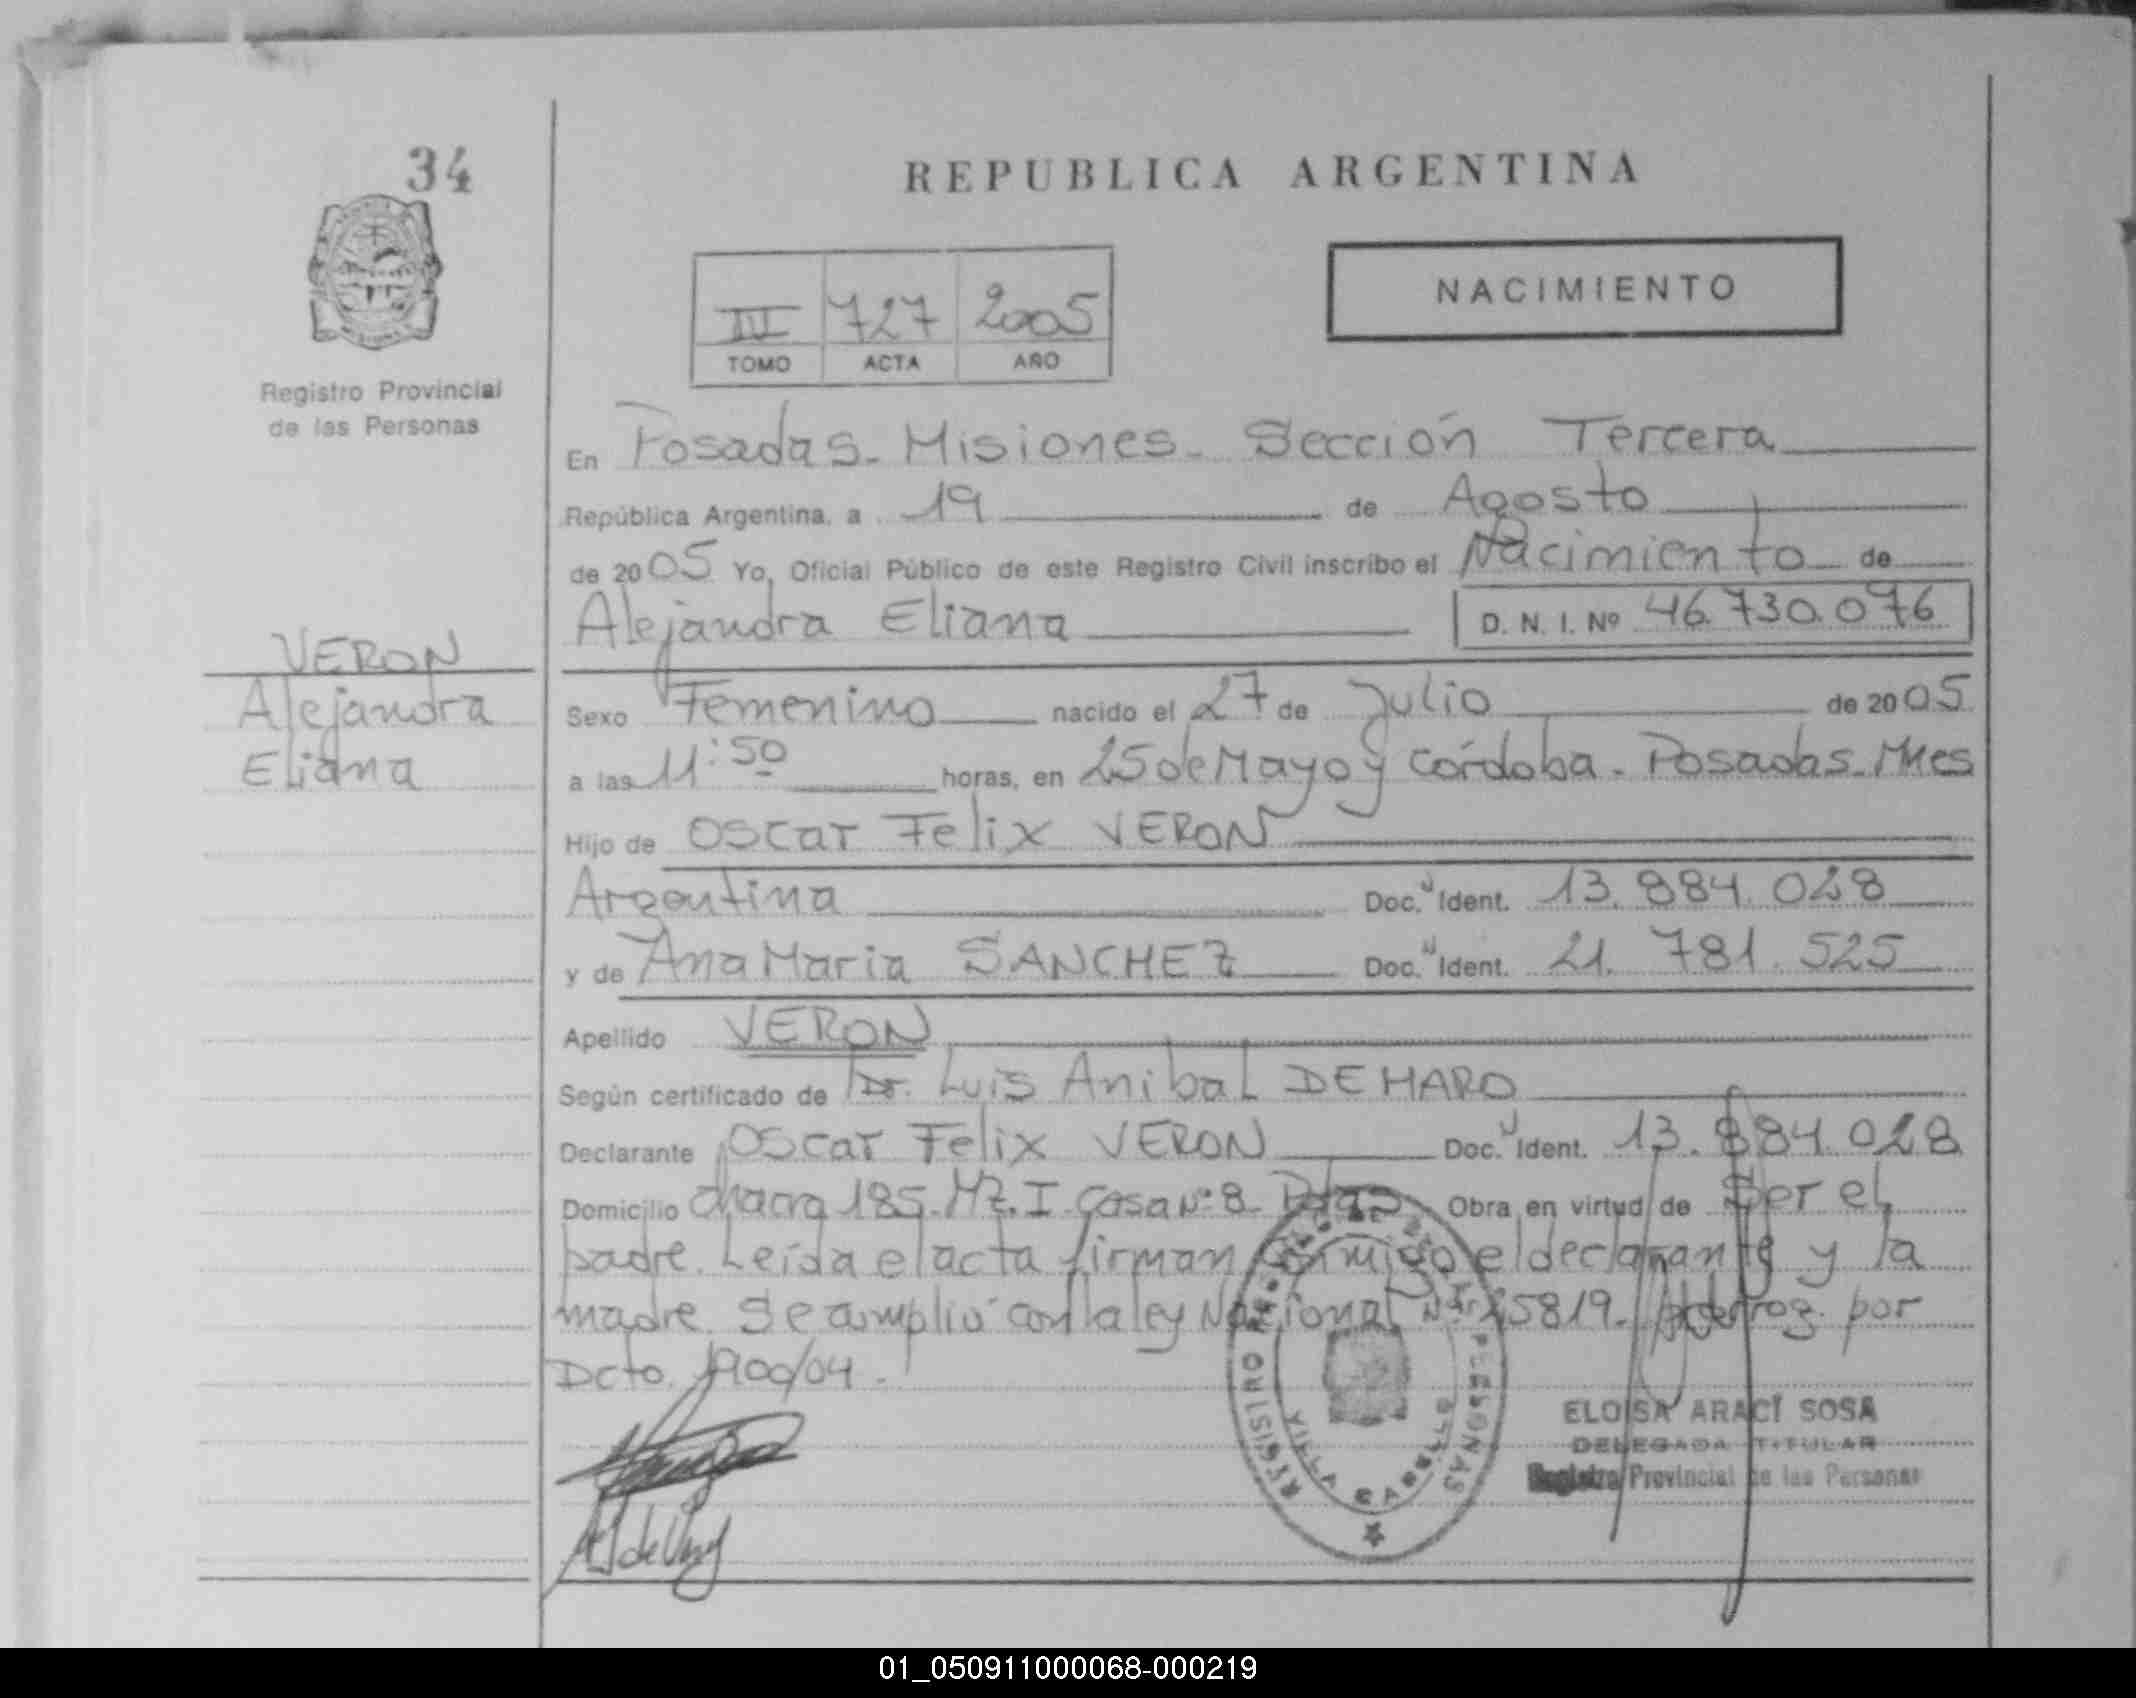 34
REPUBLICA ARGENTINA
NACIMIENTO
III 727 2005
TOMO ACTA AÑO
Registro Provincial
de las Personas
En Posadas - Misiones - Sección Tercera
República Argentina, a 19 de Agosto
de 2005 Yo, Oficial Público de este Registro Civil inscribo el Nacimiento de
Alejandra Eliana D. N. I. Nº 46.730.076
VERON
Alejandra
Eliana
Sexo Femenino nacido el 27 de Julio de 2005
a las 11:50 horas, en 25 de Mayo y Córdoba - Posadas - Mnes
Hijo de Oscar Felix VERON
Argentina Doc. Ident. 13.884.028
y de Ana Maria SANCHEZ Doc. Ident. 21.781.525
Apellido VERON
Según certificado de Dr. Luis Anibal DE HARO
Declarante Oscar Felix VERON Doc. Ident. 13.884.028
Domicilio chacra 185 - Mz. I - Casa Nº 8 - Pdas Obra en virtud de Ser el
padre. Leída el acta firman conmigo el declarante y la
madre. Se cumplió con la ley Nacional Nº 25819. por
Dcto. 1900/04 -
REGISTRO PERSONAS
VILLA CABELLO
ELOISA ARACI SOSA
DELEGADA TITULAR
Registro Provincial de las Personas
01_050911000068-000219